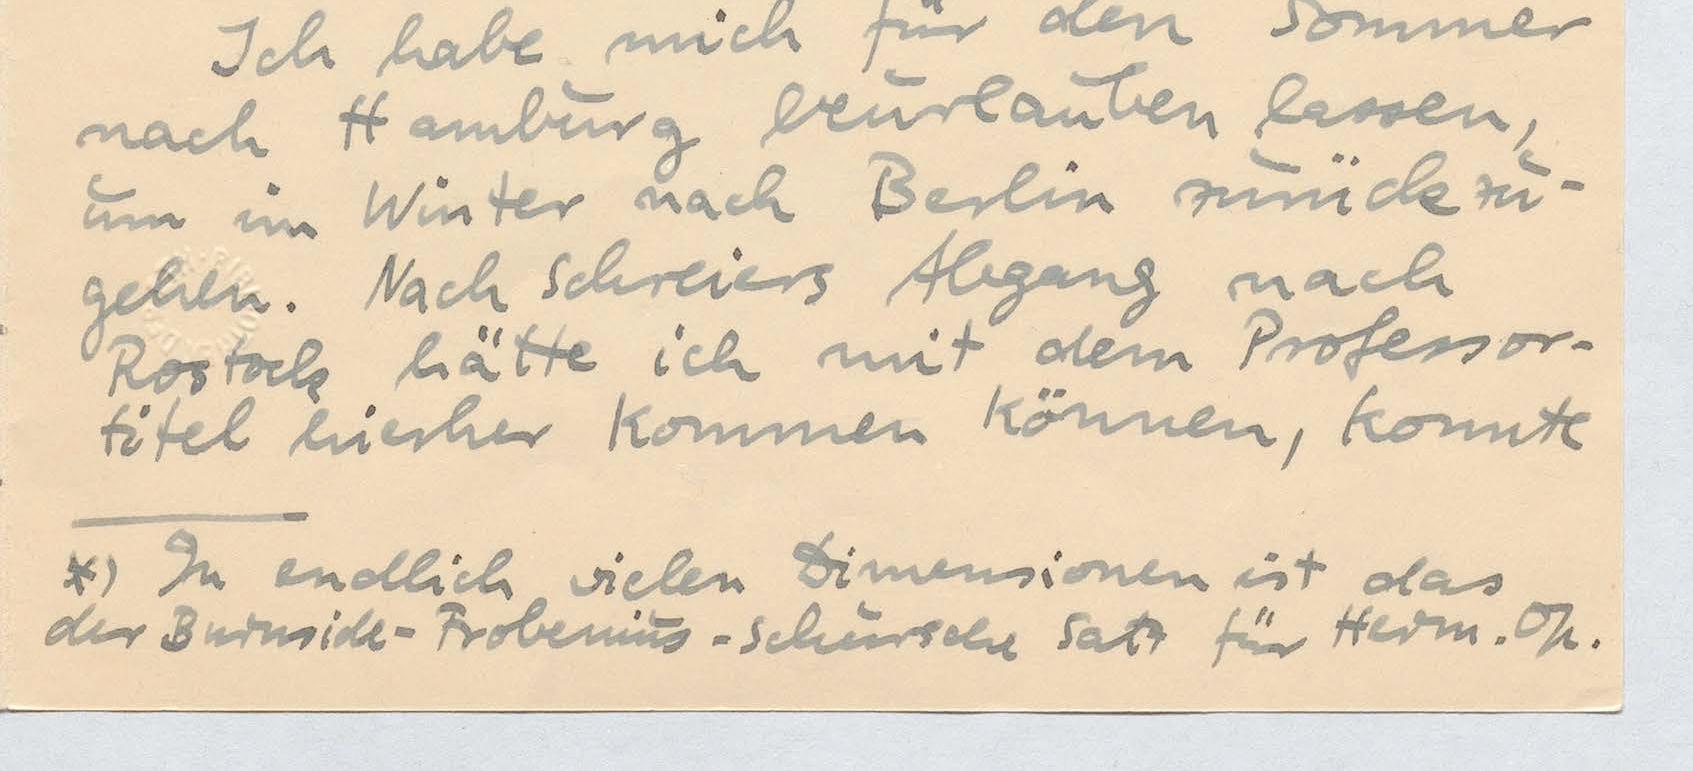 Ich habe mich für den Sommer
nach Hamburg beurlauben lassen,
um im Winter nach Berlin zurückzu-
gehen. Nach Schreiers Abgang nach
Rostock hätte ich mit dem Professor-
titel hierher kommen können, konnte
*) In endlich vielen Dimensionen ist das
der Burnside-Frobenius-Schursche Satz für Herm. Op.